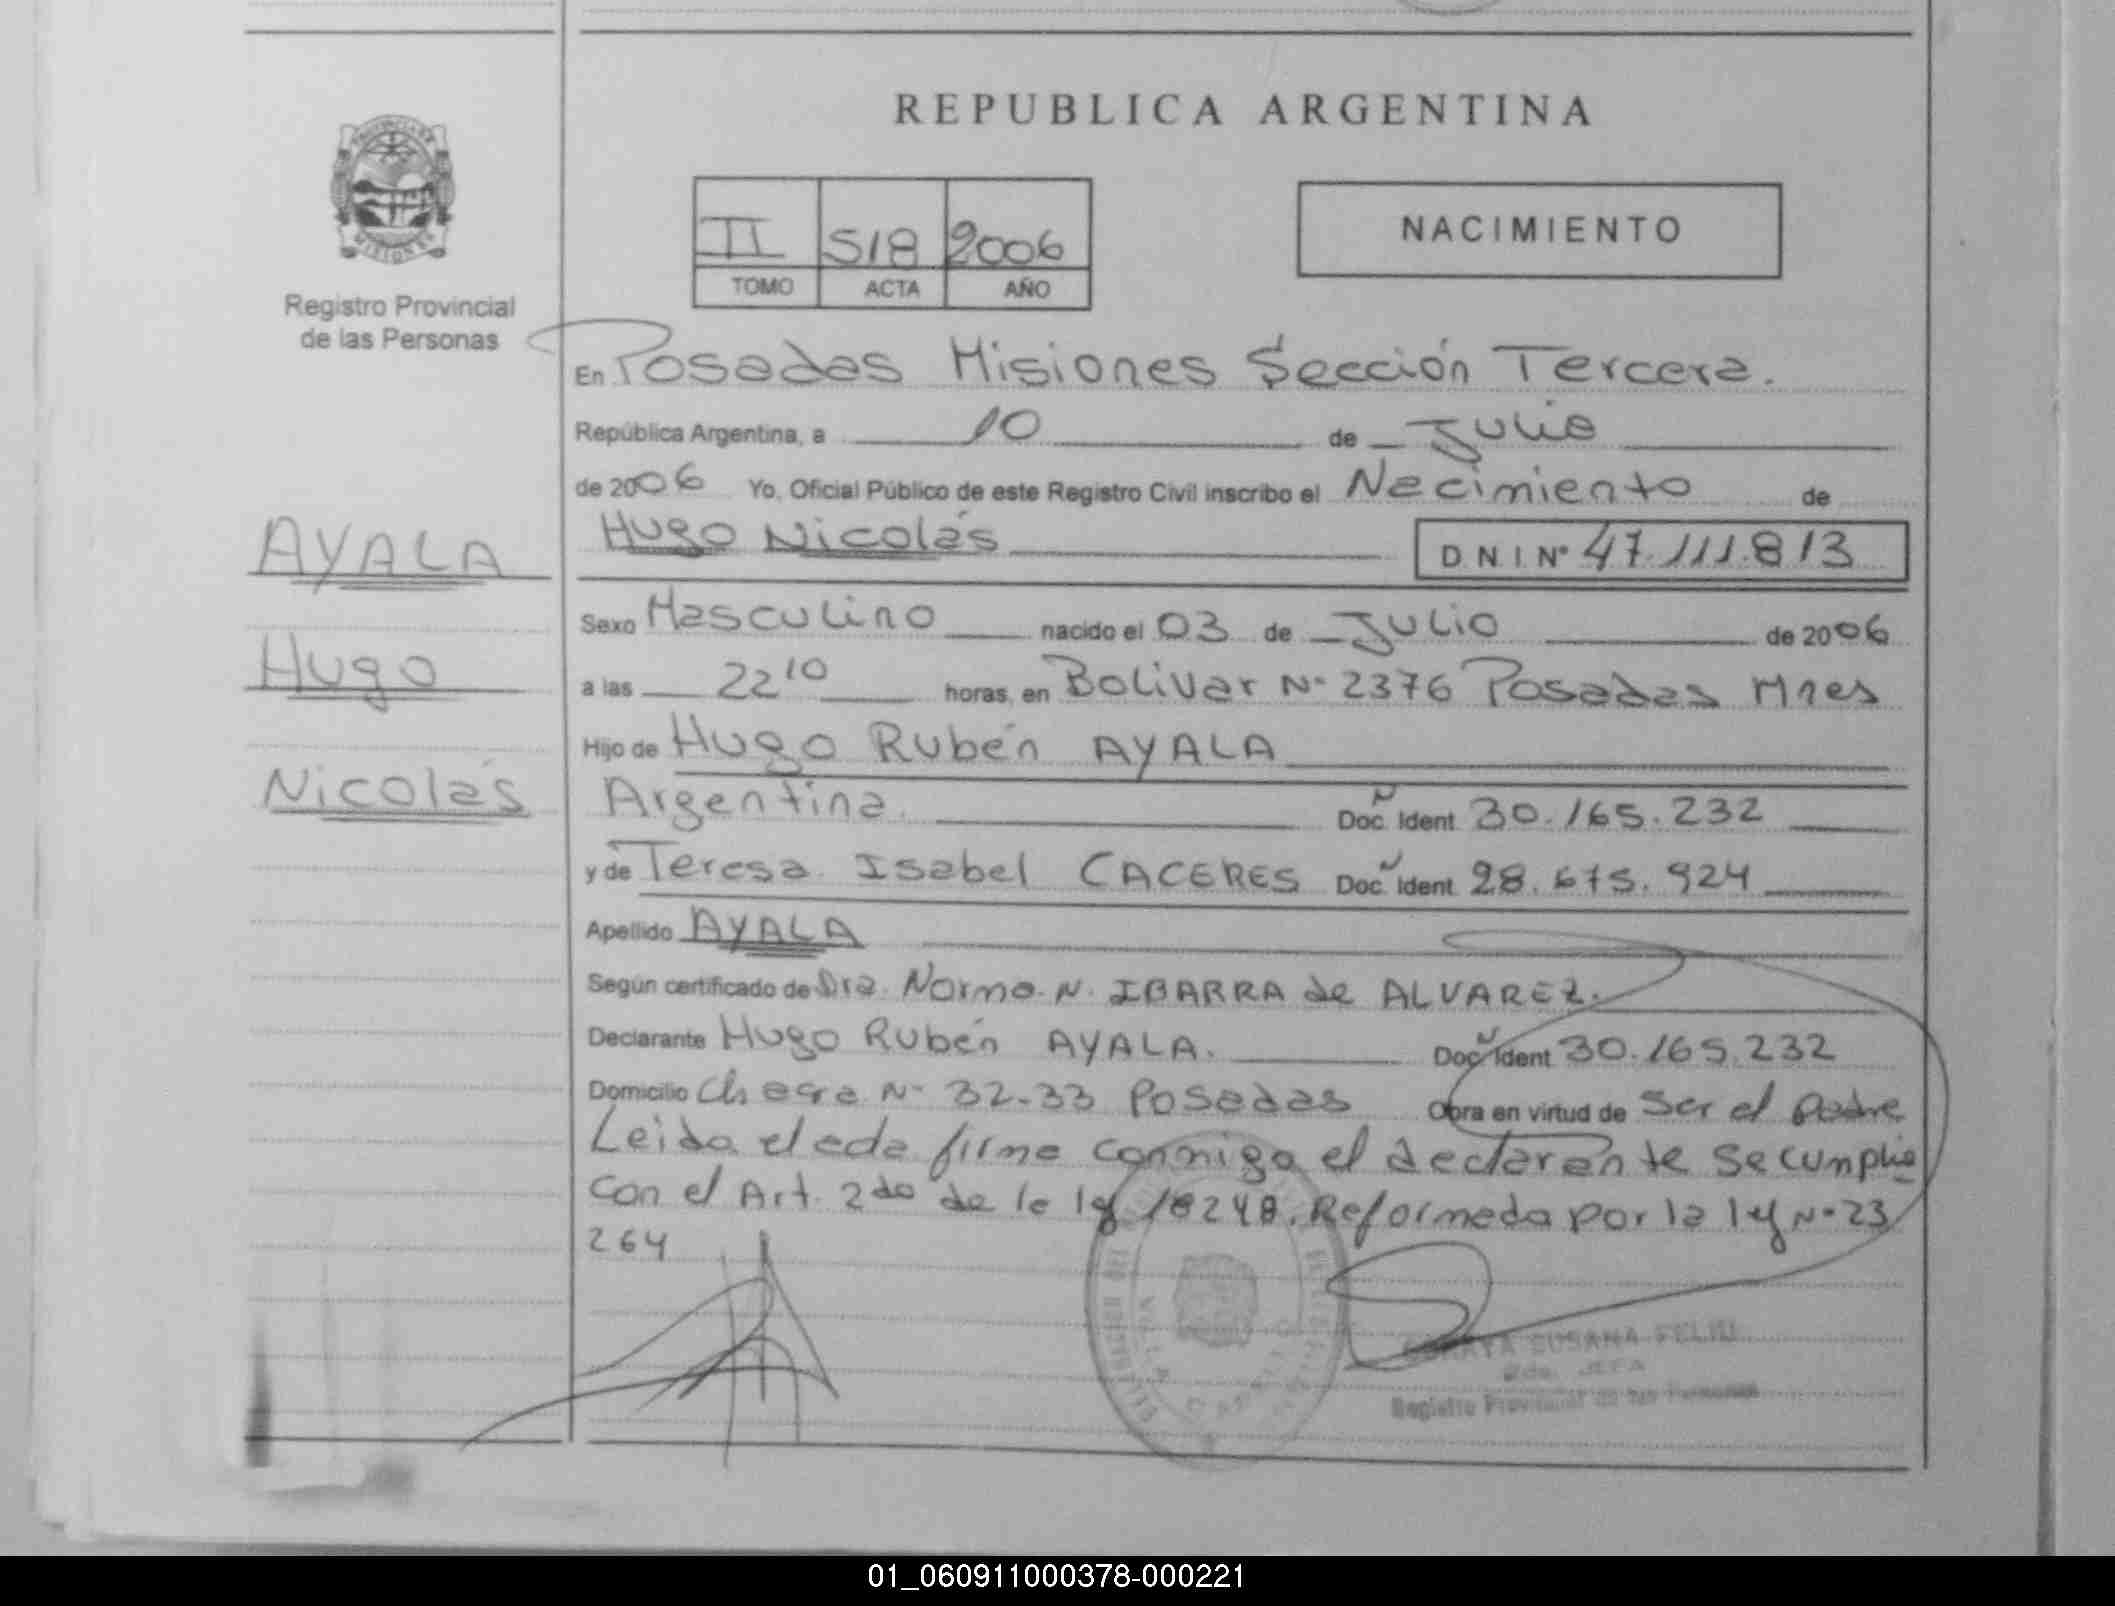 REPUBLICA ARGENTINA
PROVINCIA DE
MISIONES
Registro Provincial
de las Personas
II S18 2006
TOMO ACTA AÑO
NACIMIENTO
En Posadas Misiones Sección Tercera.
República Argentina, a 10 de Julio
de 2006 Yo, Oficial Público de este Registro Civil inscribo el Nacimiento de
Hugo Nicolás D.N.I. Nº 47.111.813
AYALA
Hugo
Nicolás
Sexo Masculino nacido el 03 de Julio de 2006
a las 22 10 horas, en Bolivar Nº 2376 Posadas Mnes
Hijo de Hugo Rubén AYALA
Argentina. Doc. Ident. 30.165.232
y de Teresa Isabel CACERES Doc. Ident. 28.675.924
Apellido AYALA
Según certificado de Dra. Norma N. IBARRA de ALVAREZ.
Declarante Hugo Rubén AYALA. Doc. Ident 30.165.232
Domicilio Chacra Nº 32-33 Posadas Obra en virtud de ser el padre
Leida el acta firma conmigo el declarante se cumplio
con el Art. 2do de la ley 18248. Reformada por la ley Nº 23
264
SUSANA FELIU
2da. JEFA
Registro Provincial de las Personas
01_060911000378-000221